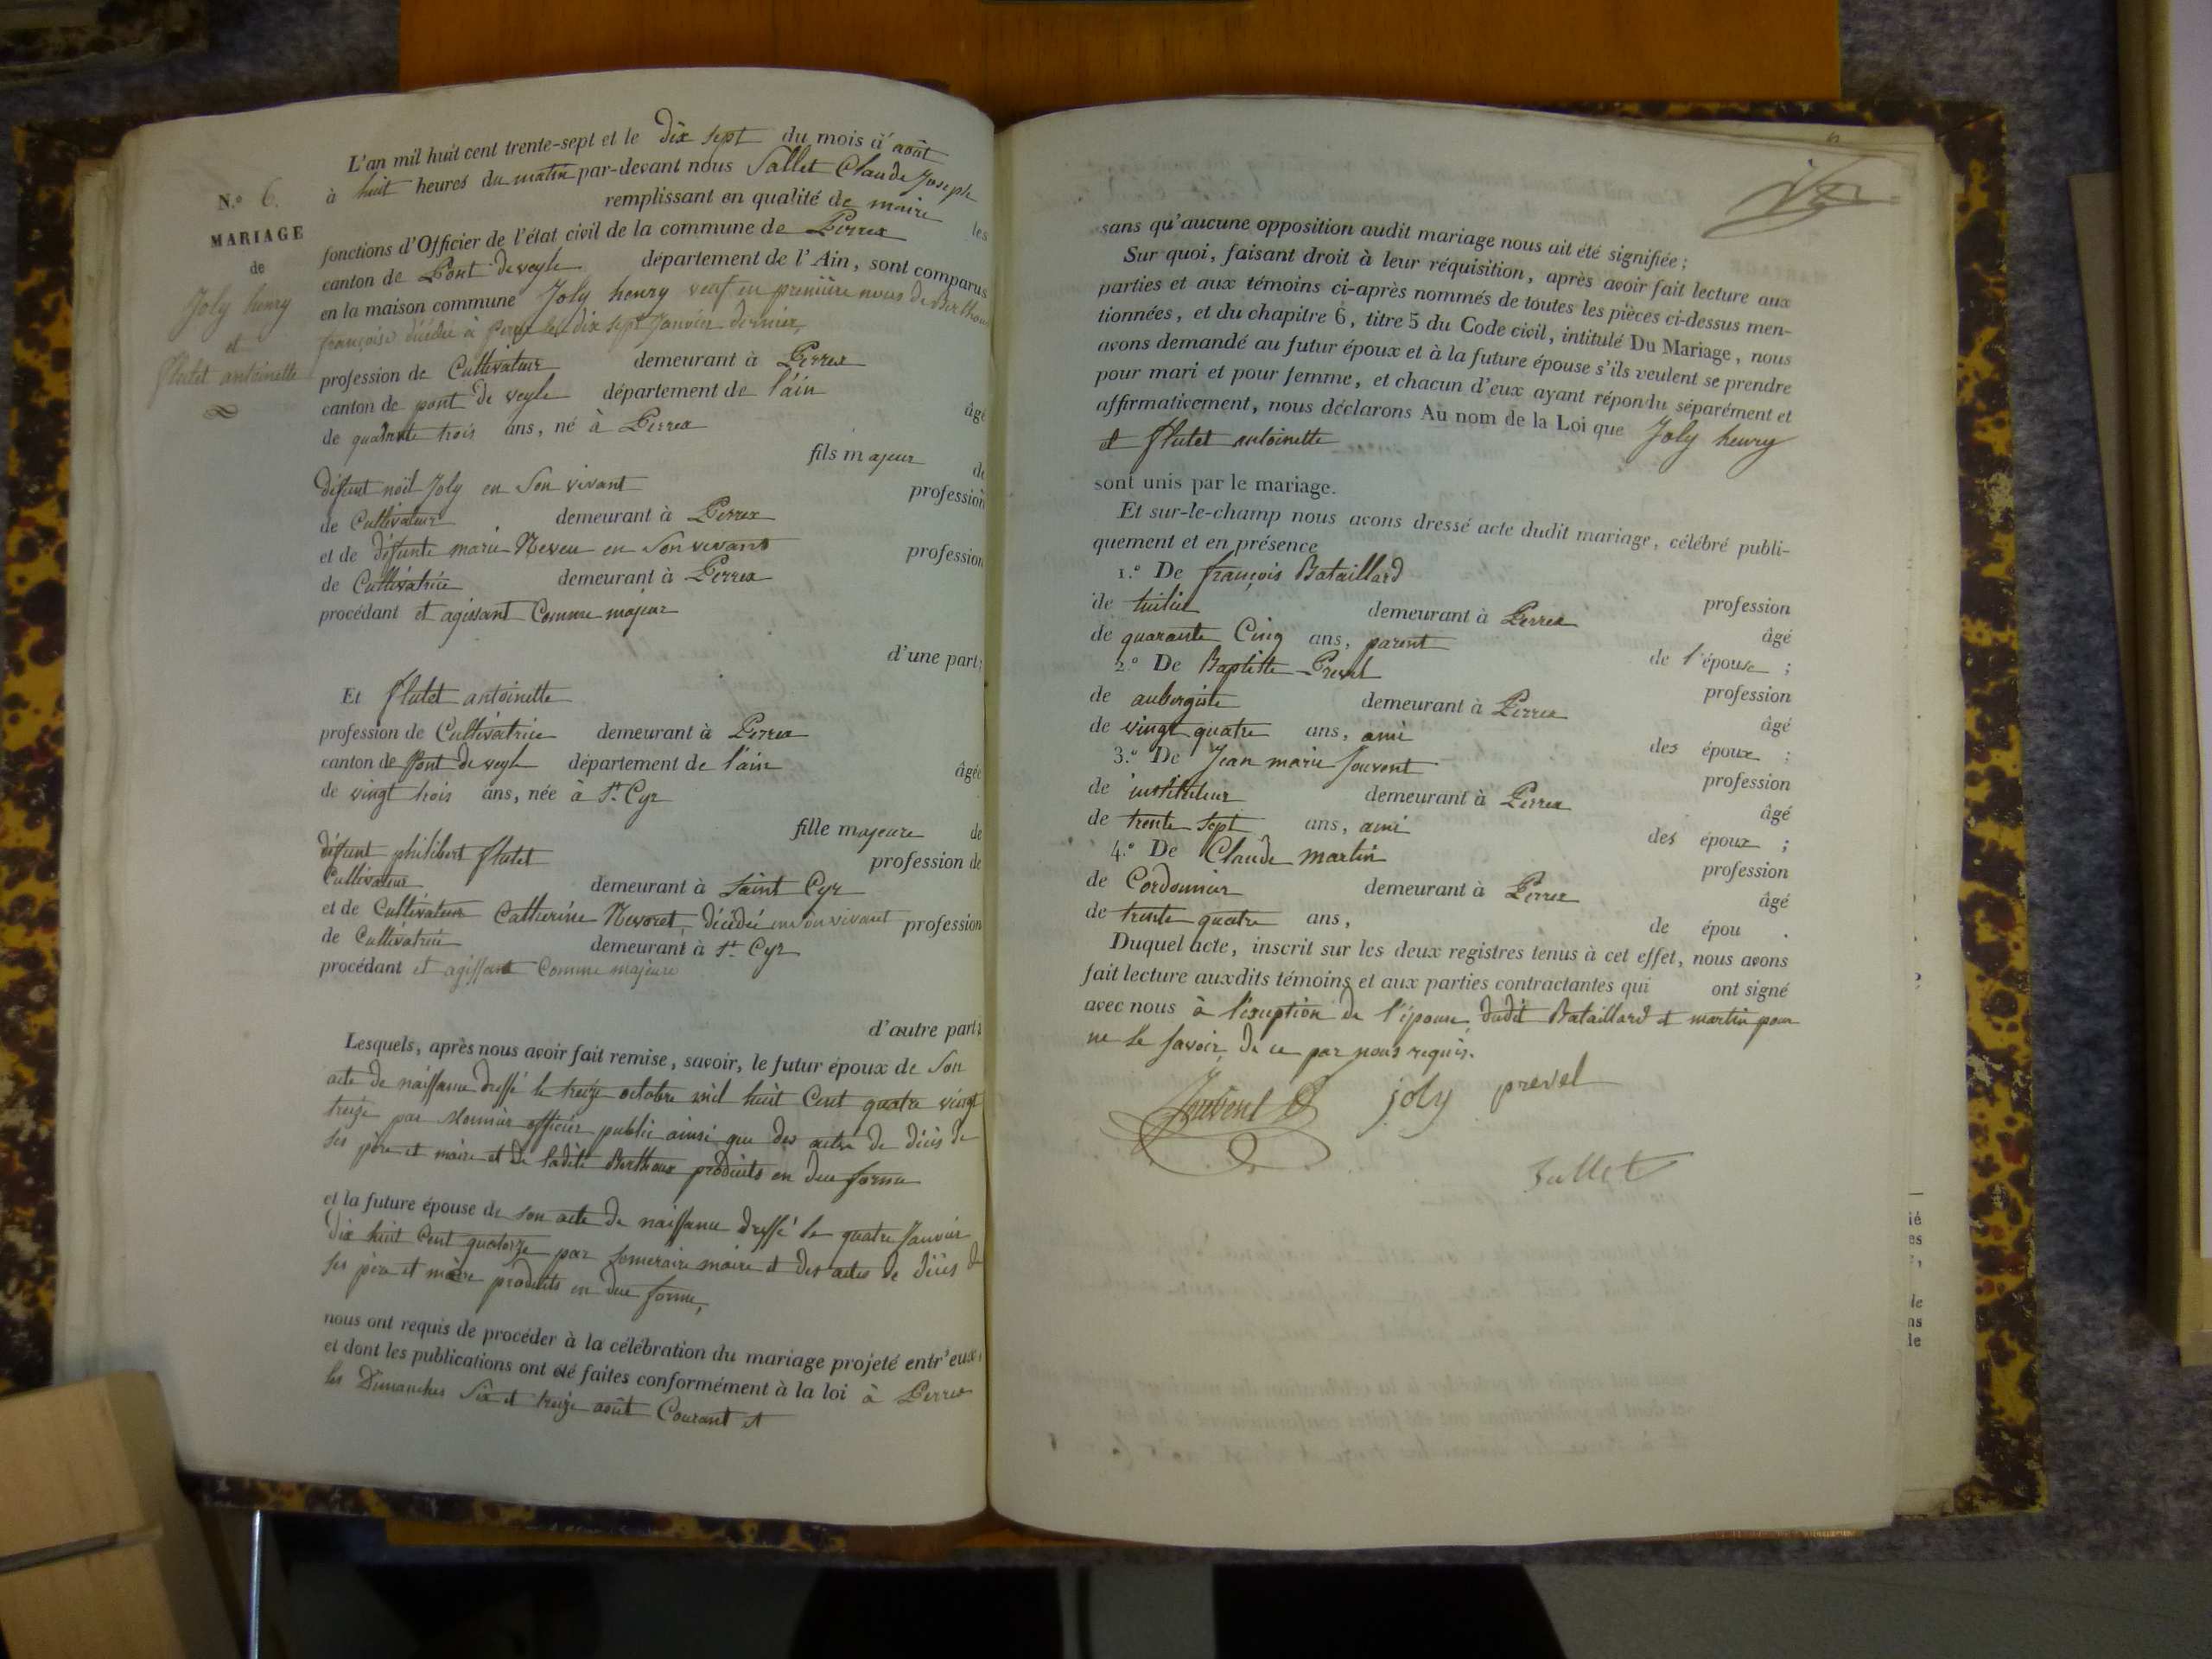 N.° 6.
MARIAGE
de
Joly henry
et
flutet antoinette
L'an mil huit cent trente-sept et le dix sept du mois d'août
à huit heures du matin par-devant nous Sallet Claude Joseph
remplissant en qualité de maire les
fonctions d'Officier de l'état civil de la commune de Perrex
canton de Pont de veyle département de l'Ain, sont comparus
en la maison commune Joly henry veuf en première noces de Berthoux
françoise décédée à Perrex le dix sept Janvier dernier,
profession de Cultivateur demeurant à Perrex
canton de pont de veyle département de l'ain âgé
de quarante trois ans, né à Perrex
fils majeur de
défunt noël Joly en Son vivant profession
de Cultivateur demeurant à Perrex
et de défunte marie Neveu en Son vivant profession
de Cultivatrice demeurant à Perrex
procédant et agissant Comme majeur
d'une part;
Et flutet antoinette
profession de Cultivatrice demeurant à Perrex
canton de Pont de veyle département de l'ain âgée
de vingt trois ans, née à St. Cyr
fille majeure de
défunt philibert flutet profession de
Cultivateur demeurant à Saint Cyr
et de Cultivateur Catherine Nevoret, décédée en son vivant profession
de Cultivatrice demeurant à St. Cyr
procédant et agissant Comme majeure
d'autre part;
Lesquels, après nous avoir fait remise, savoir, le futur époux de Son
acte de naissance dressé le treize octobre mil huit Cent quatre vingt
treize par officier public ainsi que des actes de décès de
ses père et maire et de ladite Berthoux produits en due forme
et la future épouse de son acte de naissance dressé le quatre Janvier
dix huit Cent quatorze par maire et des actes de décès de
ses père et mère produits en due forme,
nous ont requis de procéder à la célébration du mariage projeté entr'eux,
et dont les publications ont été faites conformément à la loi à Perrex
les Dimanches Six et treize août Courant et
sans qu'aucune opposition audit mariage nous ait été signifiée;
Sur quoi, faisant droit à leur réquisition, après avoir fait lecture aux
parties et aux témoins ci-après nommés de toutes les pièces ci-dessus men-
tionnées, et du chapitre 6, titre 5 du Code civil, intitulé Du Mariage, nous
avons demandé au futur époux et à la future épouse s'ils veulent se prendre
pour mari et pour femme, et chacun d'eux ayant répondu séparément et
affirmativement, nous déclarons Au nom de la Loi que Joly henry
et flutet antoinette
sont unis par le mariage.
Et sur-le-champ nous avons dressé acte dudit mariage, célébré publi-
quement et en présence
1.° De françois Bataillard profession
de tuilier demeurant à Perrex âgé
de quarante Cinq ans, parent de l'épouse ;
2.° De Baptiste Prevel profession
de aubergiste demeurant à Perrex âgé
de vingt quatre ans, ami des époux ;
3.° De Jean marie Jouvent profession
de instituteur demeurant à Perrex âgé
de trente sept ans, ami des époux ;
4.° De Claude martin profession
de Cordonnier demeurant à Perrex âgé
de trente quatre ans, de épou .
Duquel acte, inscrit sur les deux registres tenus à cet effet, nous avons
fait lecture auxdits témoins et aux parties contractantes qui ont signé
avec nous à l'exception de l'épouse, dudit Bataillard et martin pour
ne le savoir, de ce par nous requis.
Jouvent joly prevel
Sallet